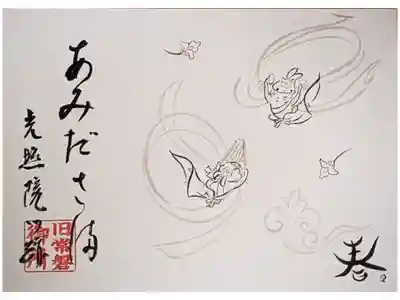 春
あみださま
光照院門跡
旧常磐
御所